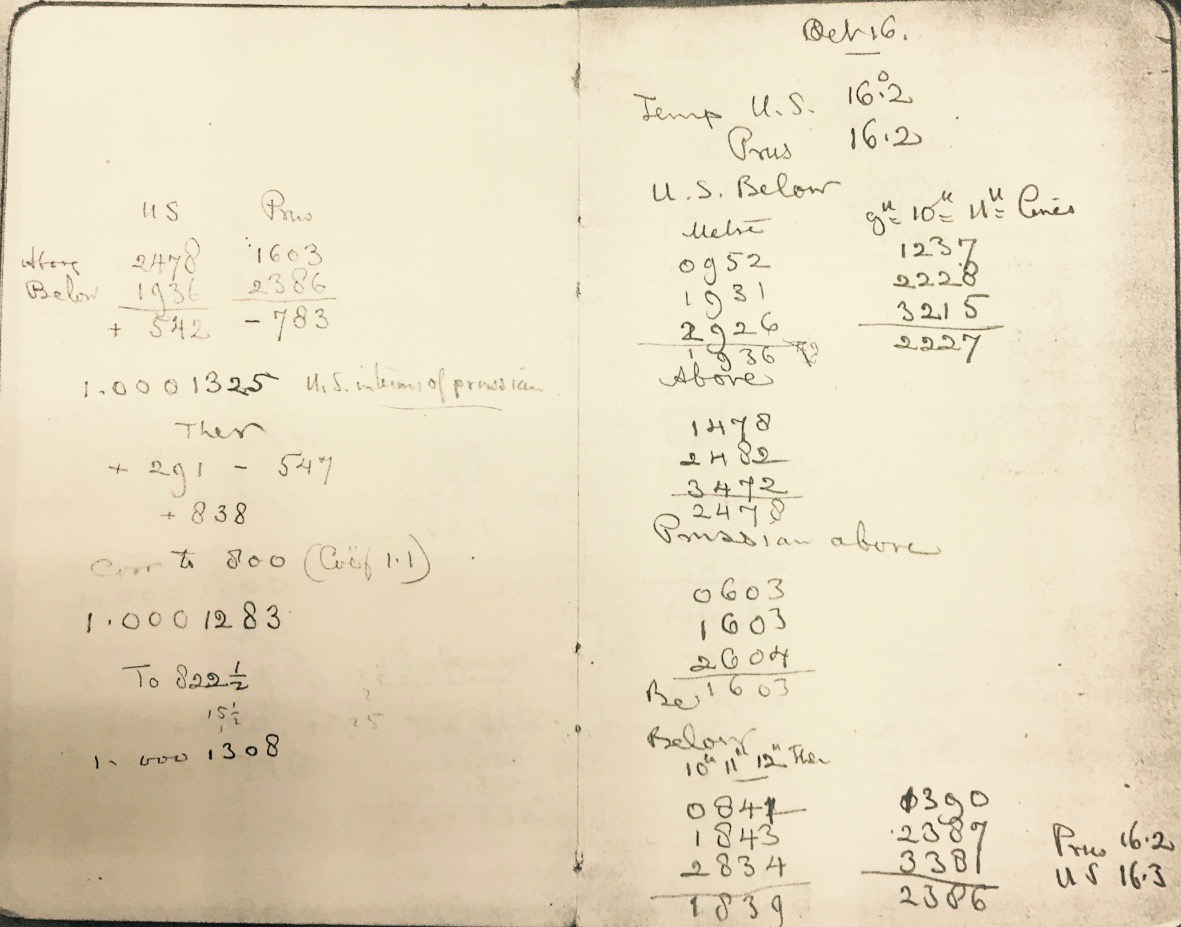 US Prus
Above 2478 1603
Below 1936 2386
+ 542 - 783
1.0001325 U.S. in terms of prussian
Ther
+ 291 - 547
+ 838
Corr to 800 (Coëf 1.1)
1.0001283
To 822½
15½
2
25
1.0001308
Oct 16.
Temp U.S. 16°.2
Prus 16.2
U.S. Below
Metre 9" 10" 11" lines
0952 1237
1931 2228
2926 3215
1936 2227
Above
1478
2482
3472
2478
Prussian above
0603
1603
2604
Be 1603
Below
10" 11" 12" Ther
0841 1390
1843 2387
2834 3381
1839 2386
Prus 16.2
US 16.3